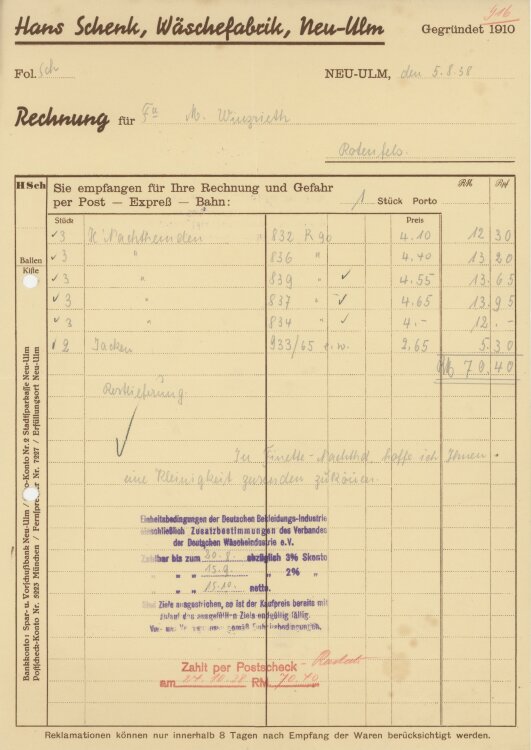 916
Hans Schenk, Wäschefabrik, Neu-Ulm
Gegründet 1910
Fol. Sch
NEU-ULM, den 5.8.38
Rechnung für Fa M. Winzrieth
Rotenfels.
HSch
Sie empfangen für Ihre Rechnung und Gefahr
per Post — Expreß — Bahn: 1 Stück Porto
RM Rpf
Stück Preis
3 K'Nachthemden 832 R 90 4.10 12 30
3 " 836 " 4.40 13 20
3 " 839 " 4.55 13.65
3 " 837 " 4.65 13.95
3 " 834 " 4.- 12.-
2 Jacken 933/65 e.w. 2,65 5.30
RM 70.40
Ballen
Kiste
Restlieferung
In Finette-Nachthd. hoffe ich Ihnen
eine Kleinigkeit zusenden zu können.
Einheitsbedingungen der Deutschen Bekleidungs-Industrie
einschließlich Zusatzbestimmungen des Verbandes
der Deutschen Wäscheindustrie e.V.
Zahlbar bis zum 20.8. abzüglich 3% Skonto
" " " 15.9. " 2% "
" " " 15.10. netto.
Sind Ziele ausgestrichen, so ist der Kaufpreis bereits mit
Ablauf des ausgefüllten Ziels endgültig fällig.
Zahlt per Postscheck - Rastatt
am 27.10.38 RM 70.40
Bankkonto: Spar- u. Vorschußbank Neu-Ulm / -Konto Nr. 2 Stadtsparkasse Neu-Ulm
Postscheck-Konto Nr. 5923 München / Fernsprecher Nr. 7227 / Erfüllungsort Neu-Ulm
Reklamationen können nur innerhalb 8 Tagen nach Empfang der Waren berücksichtigt werden.